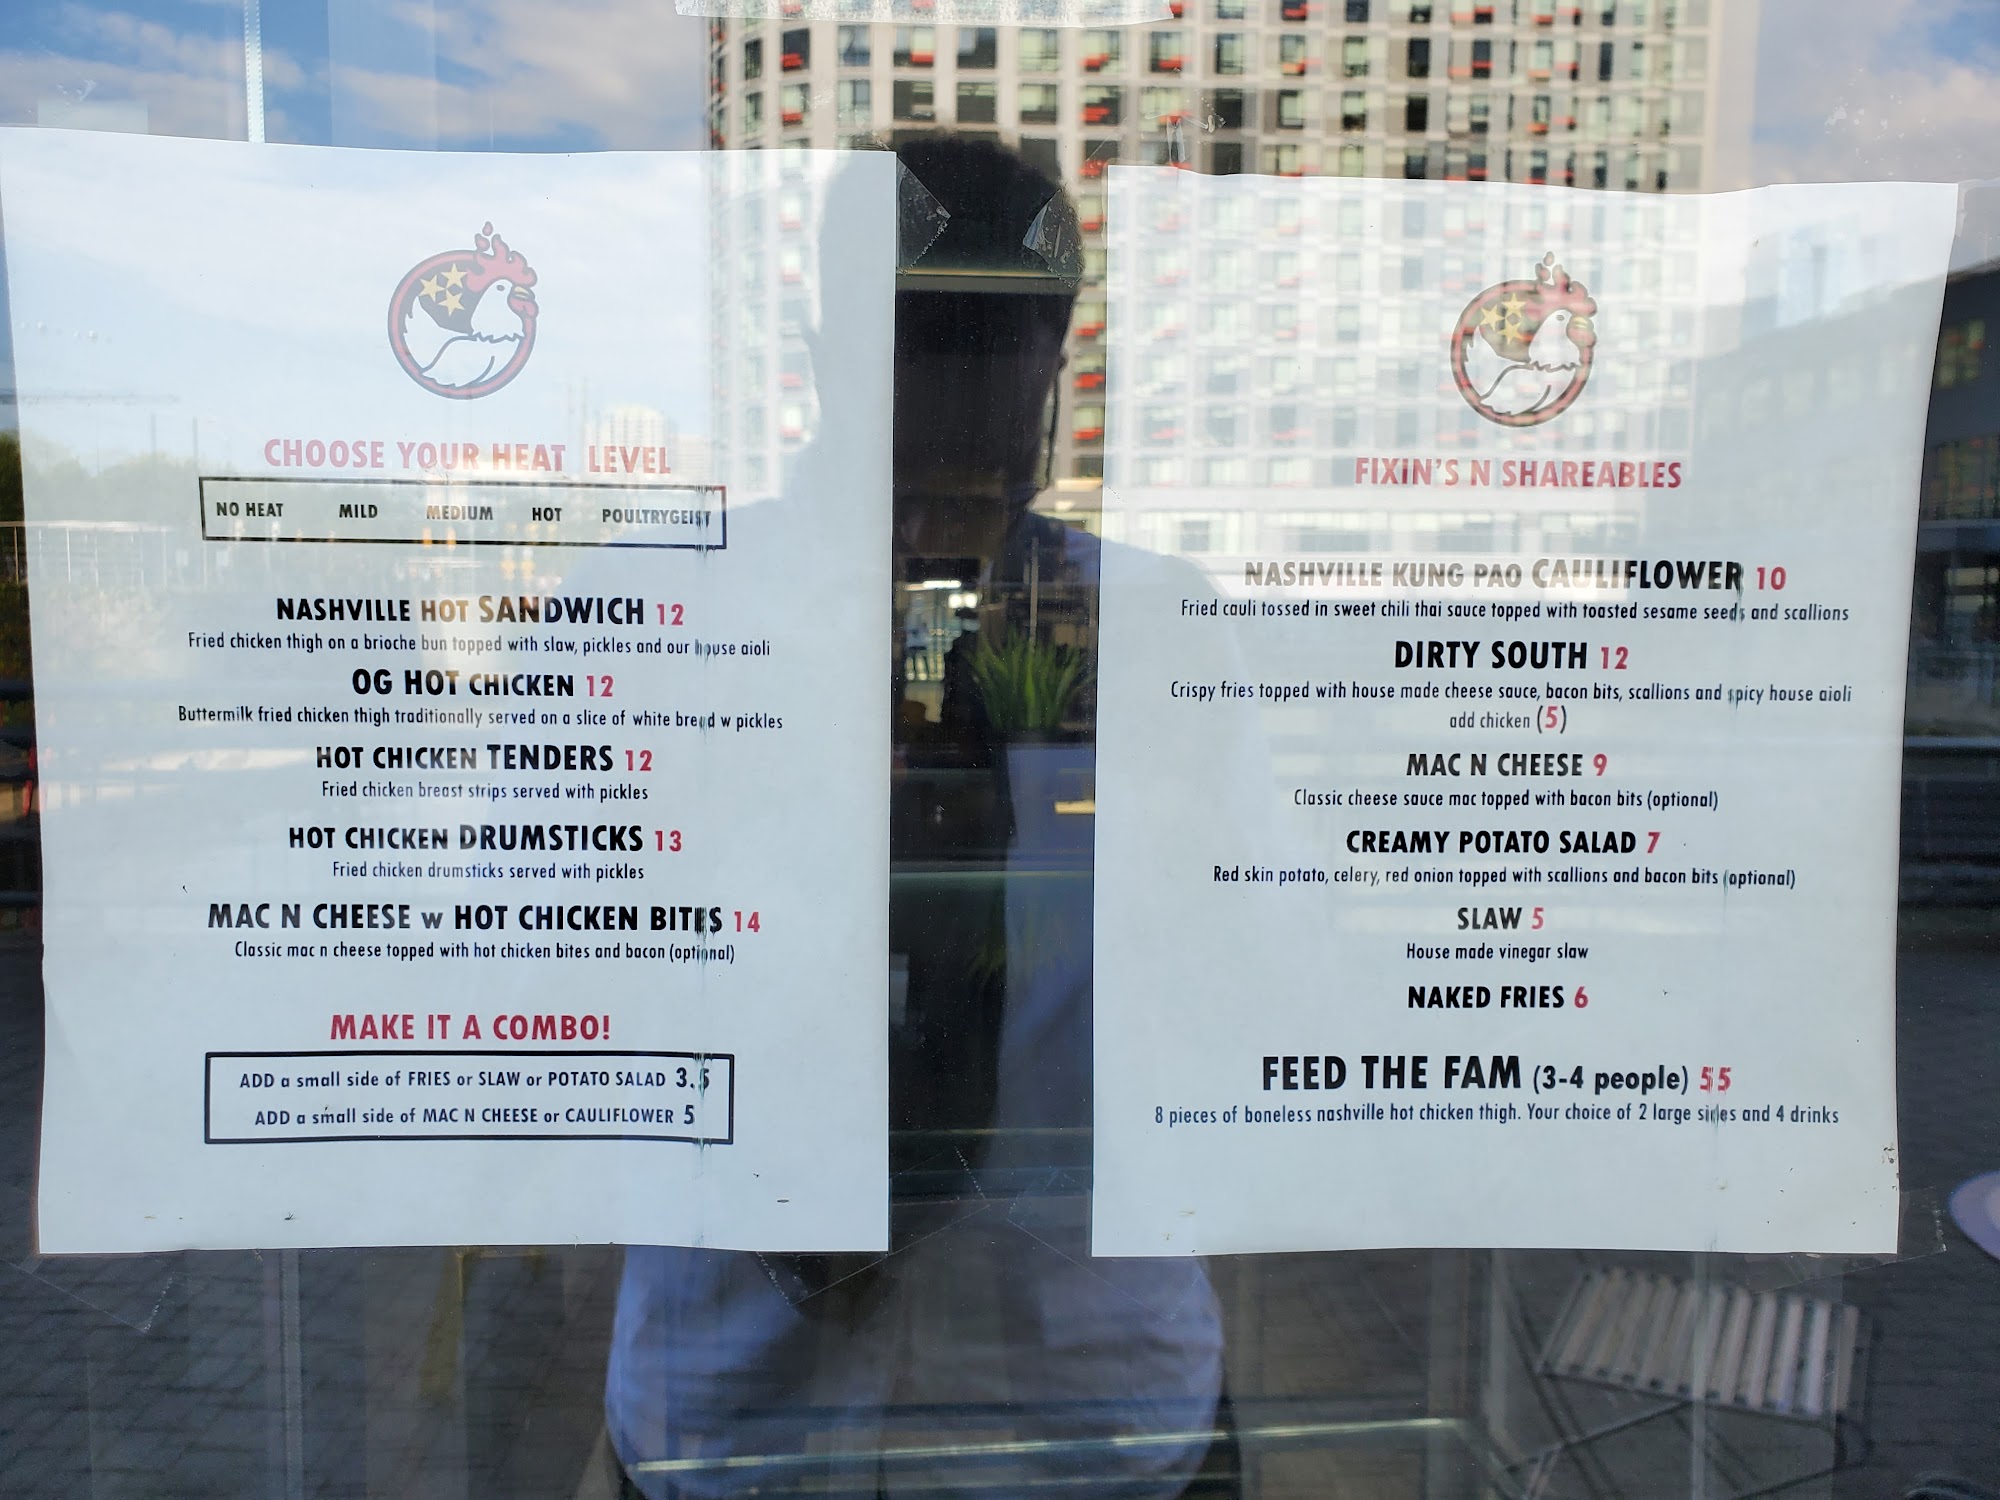 CHOOSE YOUR HEAT LEVEL
NO HEAT MILD MEDIUM HOT POULTRYGEIST
NASHVILLE HOT SANDWICH 12
Fried chicken thigh on a brioche bun topped with slaw, pickles and our house aioli
OG HOT CHICKEN 12
Buttermilk fried chicken thigh traditionally served on a slice of white bread w pickles
HOT CHICKEN TENDERS 12
Fried chicken breast strips served with pickles
HOT CHICKEN DRUMSTICKS 13
Fried chicken drumsticks served with pickles
MAC N CHEESE w HOT CHICKEN BITES 14
Classic mac n cheese topped with hot chicken bites and bacon (optional)
MAKE IT A COMBO!
ADD a small side of FRIES or SLAW or POTATO SALAD 3.5
ADD a small side of MAC N CHEESE or CAULIFLOWER 5
FIXIN'S N SHAREABLES
NASHVILLE KUNG PAO CAULIFLOWER 10
Fried cauli tossed in sweet chili thai sauce topped with toasted sesame seeds and scallions
DIRTY SOUTH 12
Crispy fries topped with house made cheese sauce, bacon bits, scallions and spicy house aioli
add chicken (5)
MAC N CHEESE 9
Classic cheese sauce mac topped with bacon bits (optional)
CREAMY POTATO SALAD 7
Red skin potato, celery, red onion topped with scallions and bacon bits (optional)
SLAW 5
House made vinegar slaw
NAKED FRIES 6
FEED THE FAM (3-4 people) 55
8 pieces of boneless nashville hot chicken thigh. Your choice of 2 large sides and 4 drinks